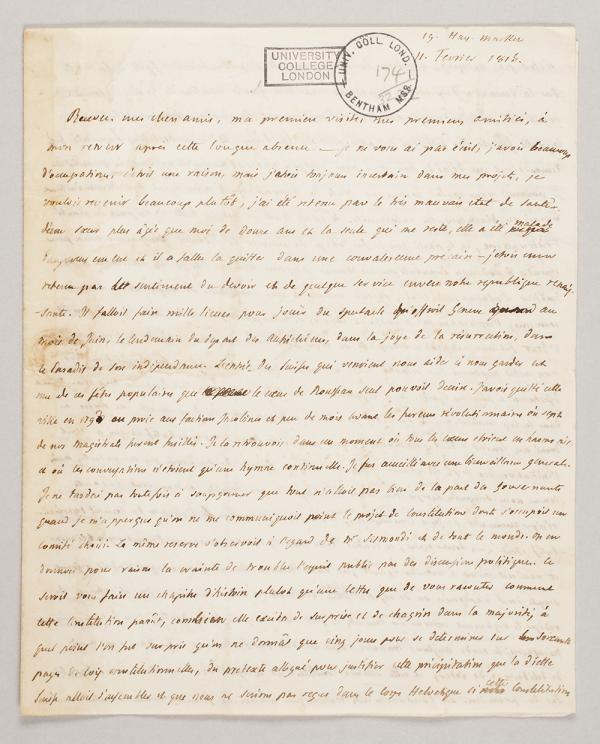 19. Hay Market
11. Fevrier 1815.
UNIVERSITY
COLLEGE
LONDON
UNIV. COLL. LOND.
174
BENTHAM MSS.
Recevez, mes chers amis, ma premiere visite, mes premieres amitiés, à
mon retour après cette longue absence — je ne vous ai pas écrit, j'avois beaucoup
d'occupations, c'étoit une raison, mais j'étois toujours incertain dans mes projets, je
voulois revenir beaucoup plutôt, j'ai été retenu par le très mauvais état de santé
d'une sœur plus âgée que moi de douze ans et la seule qui me reste, elle a été malade
dangereusement et il a fallu la quitter dans une convalescence précaire — j'étois encore
retenu par le sentiment du devoir et de quelque service envers notre republique renais-
sante. Il falloit faire mille lieues pour jouir du spectacle qu'offroit Geneve au
mois de Juin, le lendemain du départ des Autrichiens, dans la joye de la résurrection, dans
le Paradis de son indépendance. L'entrée des Suisses qui venoient nous aider à nous garder est
une de ces fêtes populaires que le cœur de Rousseau seul pouvoit decrire. J'avois quitté cette
ville en en proie aux factions Jacobines et peu de mois avant les fureurs révolutionnaires où sept
de nos magistrats furent fusillés. Je la retrouvois dans un moment où tous les cœurs etoient en harmonie,
et où les conversations n'etoient qu'une hymne continuelle. Je fus accueilli avec une bienveillance generale.
Je ne tardai pas toutefois à soupçonner que tout n'alloit pas bien de la part des Gouvernants
quand je m'apperçus qu'on ne me communiquoit point le projet de Constitution dont s'occupoit un
comité choisi. La même reserve s'observoit à l'égard de Mr Sismondi et de tout le monde. On en
donnoit pour raison la crainte de troubler l'esprit public par des discussions politiques. Ce
seroit vous faire un chapitre d'histoire plutot qu'une lettre que de vous raconter comment
cette Constitution parût, combien elle excita de surprise et de chagrin dans la majorité, à
quel point l'on fut surpris qu'on ne donnât que cinq jours pour se determiner sur
pages de loix constitutionnelles, du pretexte allegué pour justifier cette précipitation que la Diette
Suisse alloit s'assembler et que nous ne serions pas reçus dans le Corps Helvetique si cette Constitution